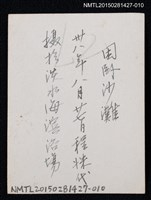 NMTL20150281427-010
困卧沙灘
卅八年八月廿七日程祥代
摄於淡水海濱浴場
NMTL20150281427-010